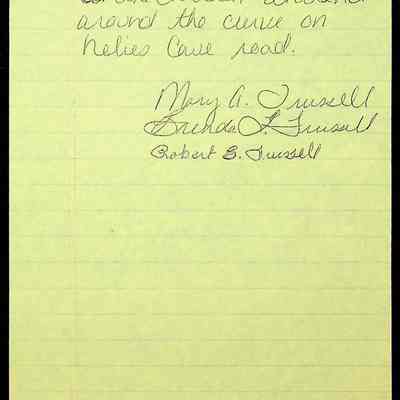 around the curve on
Nelies Cave road.
Mary A. Trussell
Brenda L. Trussell
Robert E. Trussell